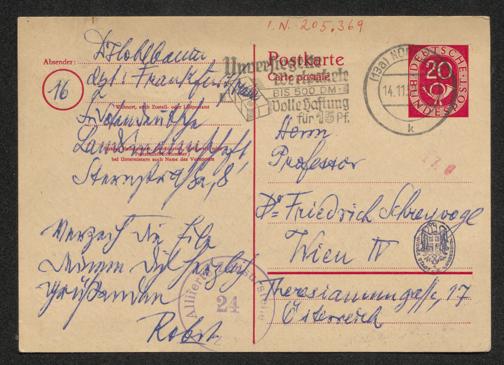 I.N. 205.369
Absender:
R Hohlbaum
dzt: Frankfurt/Main
16
Wohnort, auch Zustell- oder Leitpostamt
Sudetendeutsche
Landsmannschaft
Sternstraße, 8
bei Untermietern auch Name des Vermieters
Verzeih die Eile
Deinen Dich herzlich
grüßenden
Robert
Postkarte
Carte postale
Unversiegelte
Wertpakete
BIS 500 DM
Volle Haftung
für 15 Pf.
(13a)
14.11.
k
DEUTSCHE BUNDESPOST
20
Herrn
Professor
Dr Friedrich Schreyvogl
Wien IV
Theresianumgasse, 17
Österreich
24